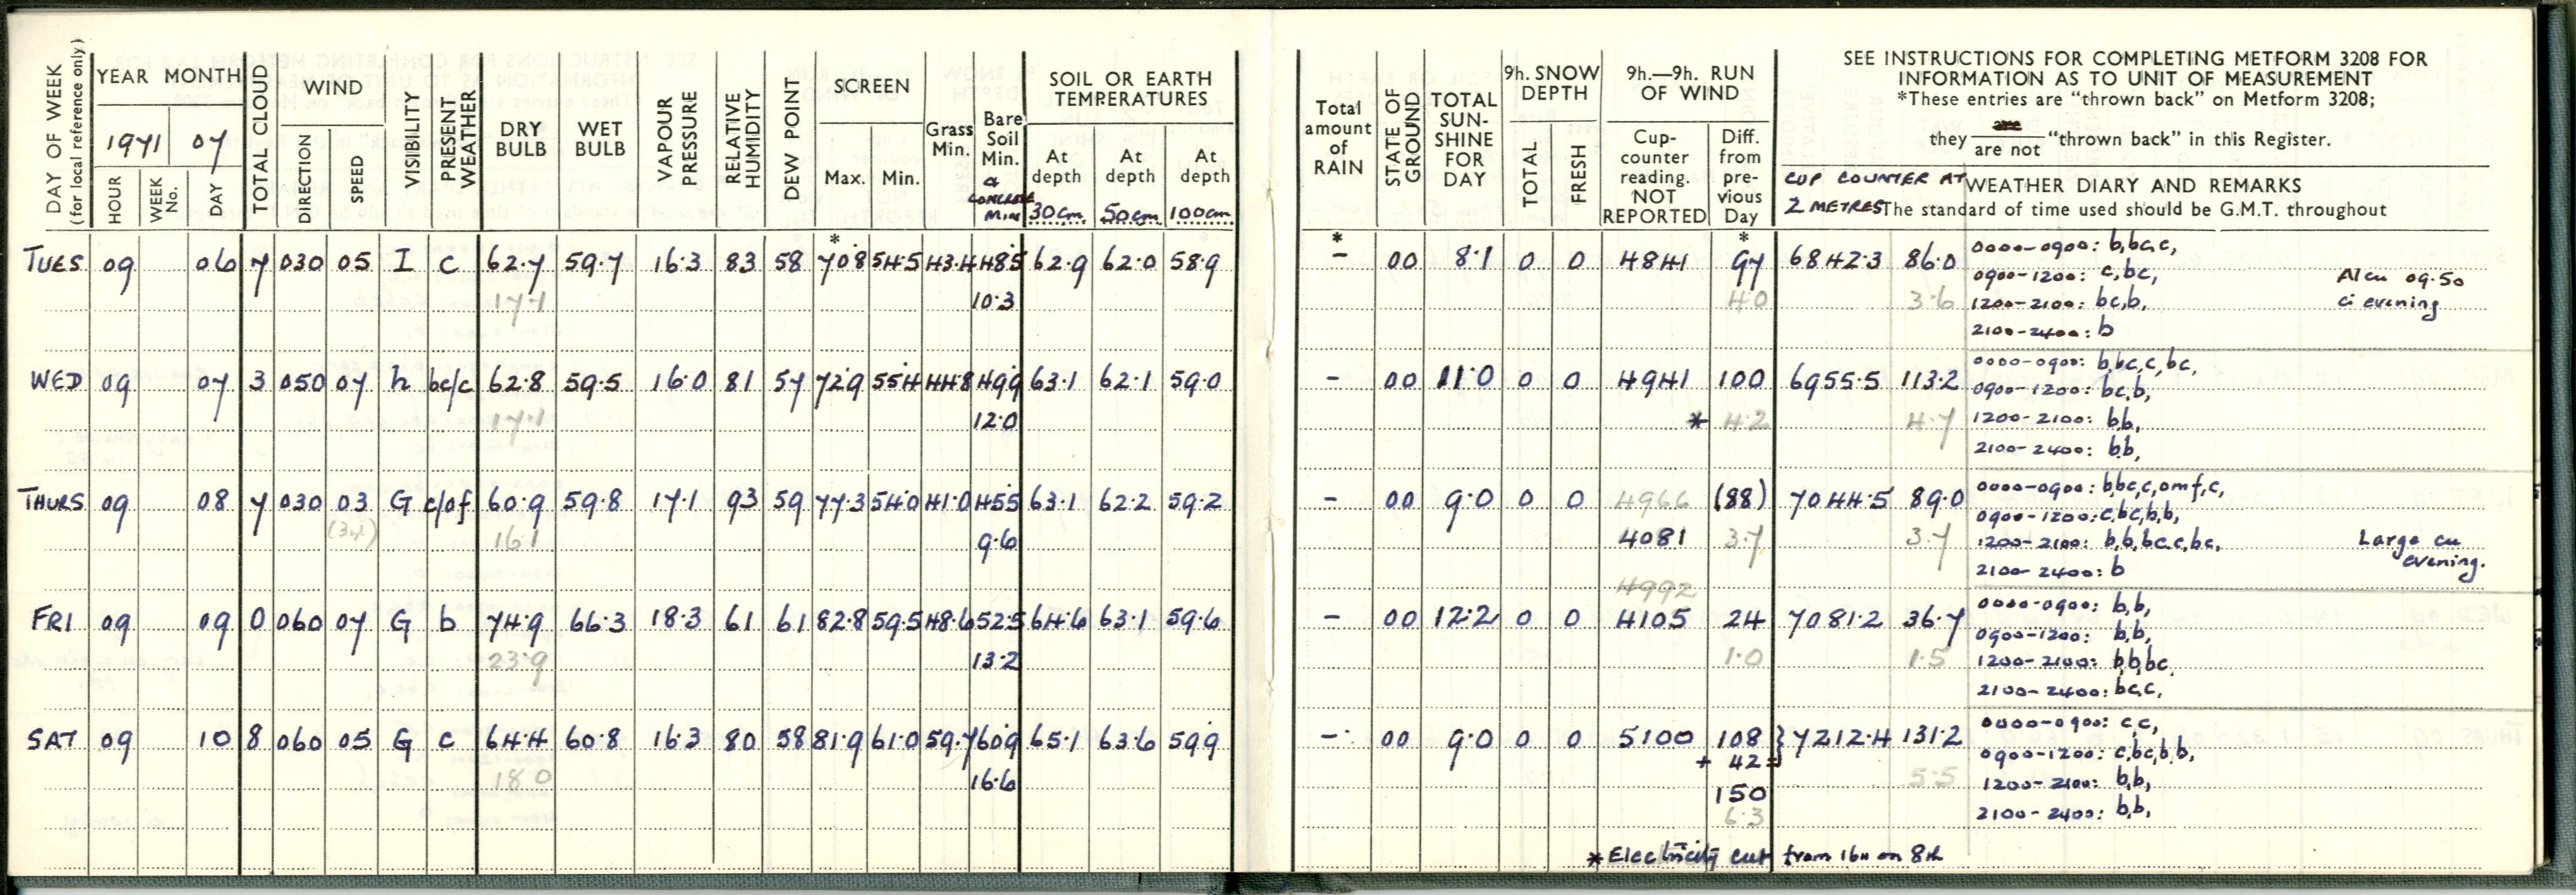 DAY OF WEEK (for local reference only)
YEAR MONTH
1971 07
HOUR WEEK No. DAY
TOTAL CLOUD
WIND
DIRECTION SPEED
VISIBILITY
PRESENT WEATHER
DRY BULB
WET BULB
VAPOUR PRESSURE
RELATIVE HUMIDITY
DEW POINT
SCREEN
Max. Min.
Grass Min.
Bare Soil Min.
a CONCRETE MIN
SOIL OR EARTH TEMPERATURES
At depth 30cm
At depth 50cm
At depth 100cm
Total amount of RAIN
STATE OF GROUND
TOTAL SUN-SHINE FOR DAY
9h. SNOW DEPTH
TOTAL FRESH
9h.—9h. RUN OF WIND
Cup-counter reading. NOT REPORTED
Diff. from pre-vious Day
SEE INSTRUCTIONS FOR COMPLETING METFORM 3208 FOR
INFORMATION AS TO UNIT OF MEASUREMENT
*These entries are "thrown back" on Metform 3208;
they are / are not "thrown back" in this Register.
CUP COUNTER AT 2 METRES
WEATHER DIARY AND REMARKS
The standard of time used should be G.M.T. throughout
* * *
TUES 09 06 7 030 05 I c 62.7 59.7 16.3 83 58 70.8 54.5 43.4 48.5 62.9 62.0 58.9 - 00 8.1 0 0 4841 97 6842.3 86.0 0000-0900: b,bc,c,
0900-1200: c,bc, Alcu 09.50
17.1 10.3 40 3.6 1200-2100: bc,b, ci evening
2100-2400: b
WED 09 07 3 050 07 h bc/c 62.8 59.5 16.0 81 57 72.9 55.4 44.8 49.9 63.1 62.1 59.0 - 00 11.0 0 0 4941 100 6955.5 113.2 0000-0900: b,bc,c,bc,
0900-1200: bc,b,
17.1 12.0 * 4.2 4.7 1200-2100: b,b,
2100-2400: b,b,
THURS 09 08 7 030 03 G c/of 60.9 59.8 17.1 93 59 77.3 54.0 41.0 45.5 63.1 62.2 59.2 - 00 9.0 0 0 4966 (88) 7044.5 89.0 0000-0900: b,bc,c,omf,c,
0900-1200: c,bc,b,b,
16.1 9.6 4081 3.7 3.7 1200-2100: b,b,bc,c,bc, Large cu
2100-2400: b evening.
4992
FRI 09 09 0 060 07 G b 74.9 66.3 18.3 61 61 82.8 59.5 48.6 52.5 64.6 63.1 59.6 - 00 12.2 0 0 4105 24 7081.2 36.7 0000-0900: b,b,
0900-1200: b,b,
23.9 13.2 1.0 1.5 1200-2100: b,b,bc,
2100-2400: bc,c,
SAT 09 10 8 060 05 G c 64.4 60.8 16.3 80 58 81.9 61.0 59.7 60.9 65.1 63.6 59.9 - 00 9.0 0 0 5100 108 7212.4 131.2 0000-0900: c,c,
+ 42 = 0900-1200: c,bc,b,b,
18.0 16.6 150 5.5 1200-2100: b,b,
6.3 2100-2400: b,b,
* Electricity cut from 16h on 8th